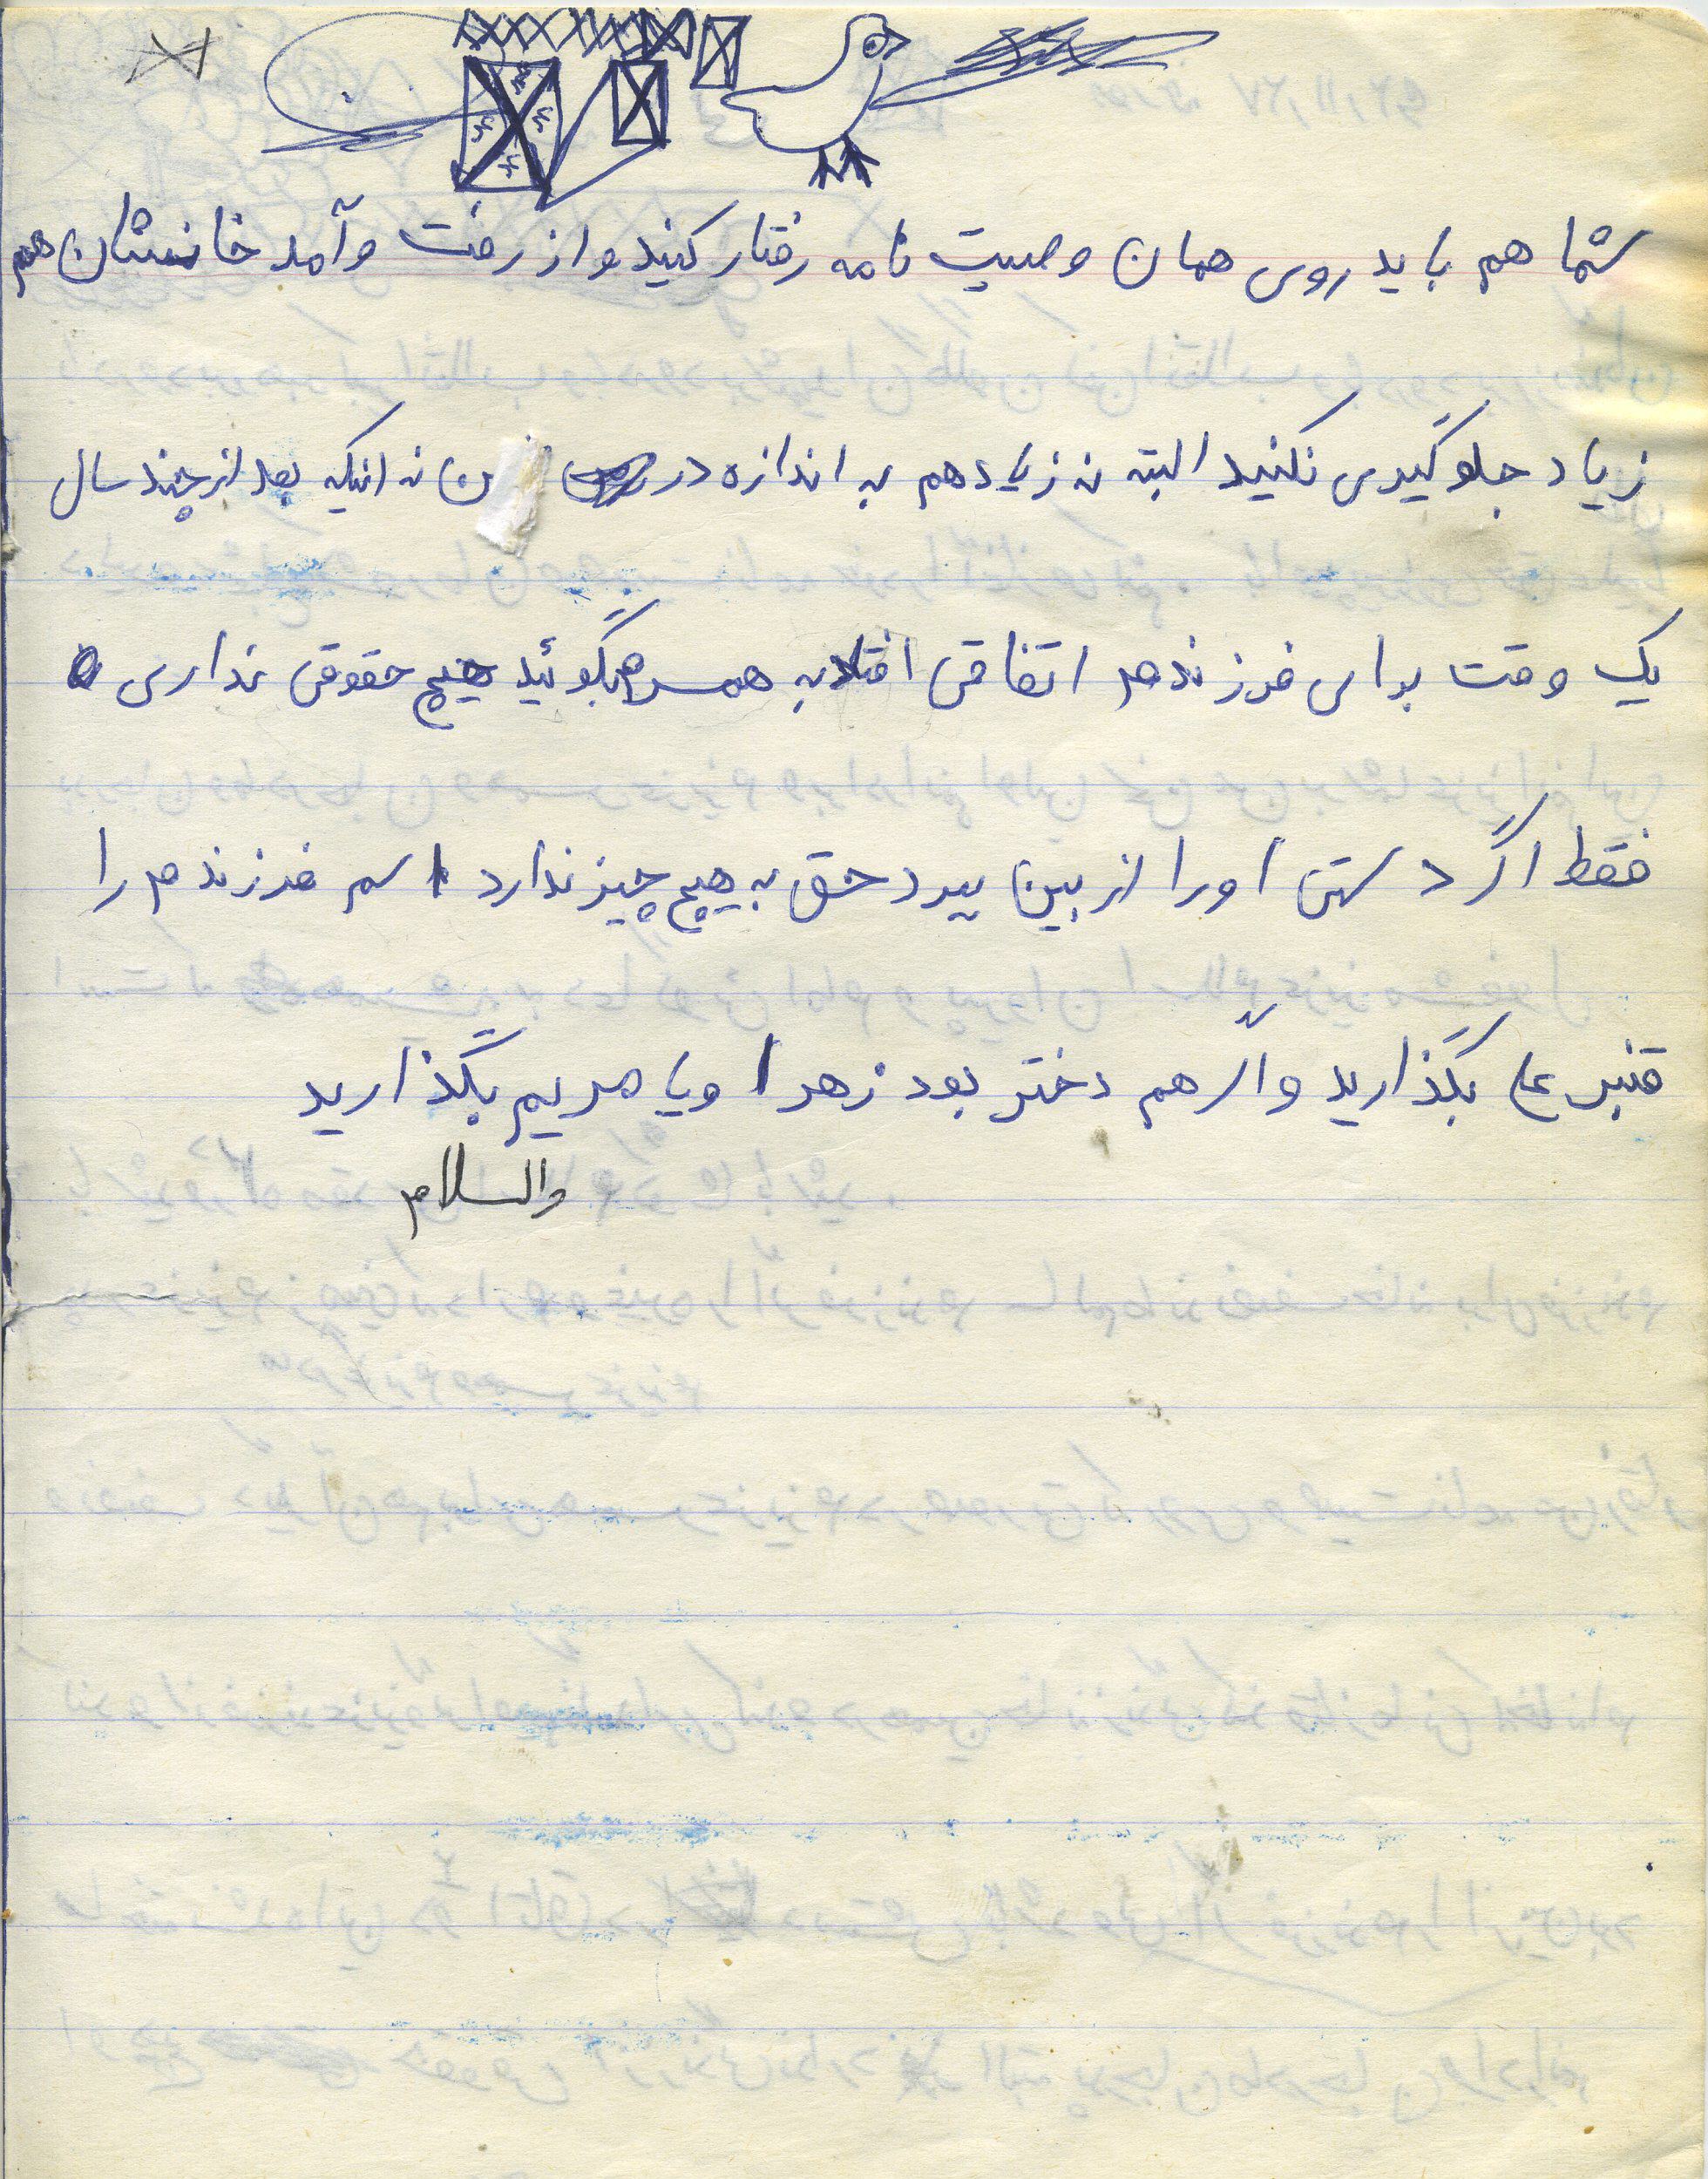 شما هم باید روی همان وصیت نامه رفتار کنید و از رفت و آمد خانمشان هم
زیاد جلوگیری نکنید البته نه زیاد هم به اندازه در نه اینکه بعد از چند سال
یک وقت برای فرزندم اتفاقی افتاد به همسرم بگوئید هیچ حقوقی نداری
فقط اگر دستی او را از بین ببرد حق به هیچ چیز ندارد اسم فرزندم را
قنبر علی بگذارید و اگر هم دختر بود زهرا و یا مریم بگذارید
والسلام